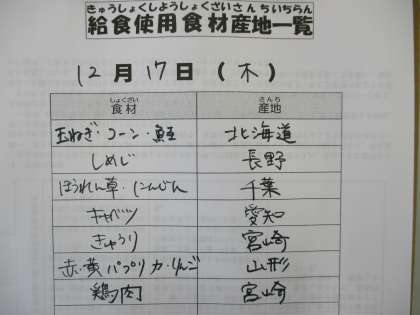 きゅうしょくしようしょくざいさんちいちらん
給食使用食材産地一覧
12月17日(木)
しょくざい さんち
食材 産地
玉ねぎ・コーン・鮭 北海道
しめじ 長野
ほうれん草・にんじん 千葉
キャベツ 愛知
きゅうり 宮崎
赤・黄パプリカ・りんご 山形
鶏肉 宮崎